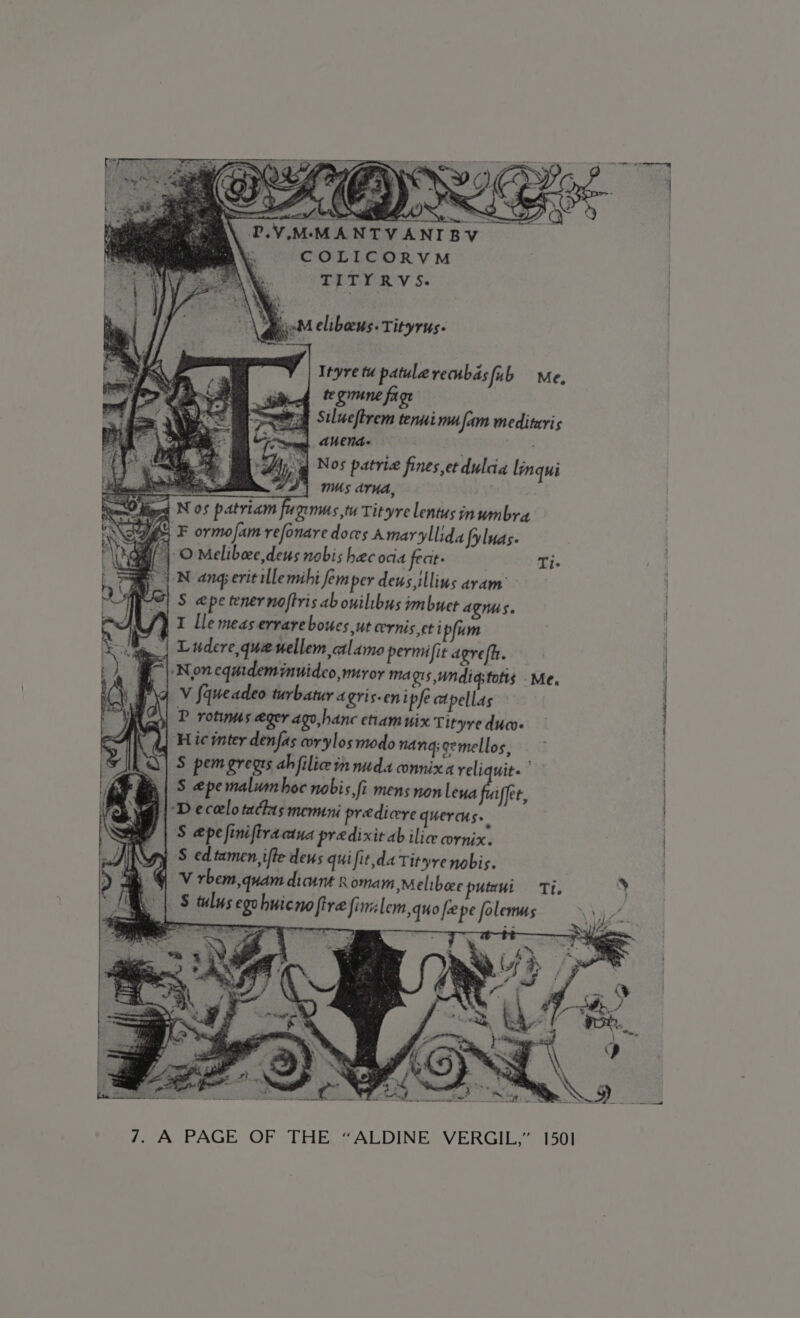 P.V.M.MANTVANI BV
COLICORVM
TITYRVS.
Melibœus. Tityrus.
Ityre tu patulæ recubás ſub Me.
tegmine fagi
Silueſtrem tenui muſam meditaris
auena.
Nos patriæ fines, et dulcia linqui
mus arua,
N os patriam fugimus, tu Tityre lentus in umbra
F ormoſam reſonare doces Amaryllida ſyluas.
O Melibœe, deus nobis hæc ocia fecit. Ti.
N anq; erit ille mihi ſemper deus, illius aram
S æpe tener noſtris ab ouilibus imbuet agnus.
I lle meas errare boues, ut cernis, et ipſum
L udere, quæ uellem, calamo permiſit agreſti.
N on equidem inuideo, miror magis, undiq; totis Me.
V ſque adeo turbatur agris. en ipſe capellas
P rotinus æger ago, hanc etiam uix Tityre duco.
H ic inter denſas corylos modo nanq; gemellos,
S pem gregis ah ſilice in nuda connixa reliquit.
S æpe malum hoc nobis, ſi mens non leua fuiſſet,
D e cœlo tactas memini prædicere quercus.
S æpe ſiniſtra caua prædixit ab ilice cornix.
S ed tamen, iſte deus qui ſit, da Tityre nobis.
V rbem, quam dicunt Romam, Melibœe putaui Ti.
S tulus ego huic noſtræ ſimilem, quo ſæpe ſolemus
a ii
7. A PAGE OF THE "ALDINE VERGIL," 1501